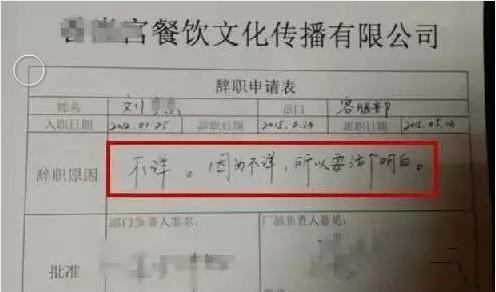 宫餐饮文化传播有限公司
辞职申请表
姓名 刘 部门 客服部
入职日期 辞职日期 离职日期
辞职原因 不详。因为不详，所以要活个明白。
部门负责人签名： 厂部负责人意见：
批准